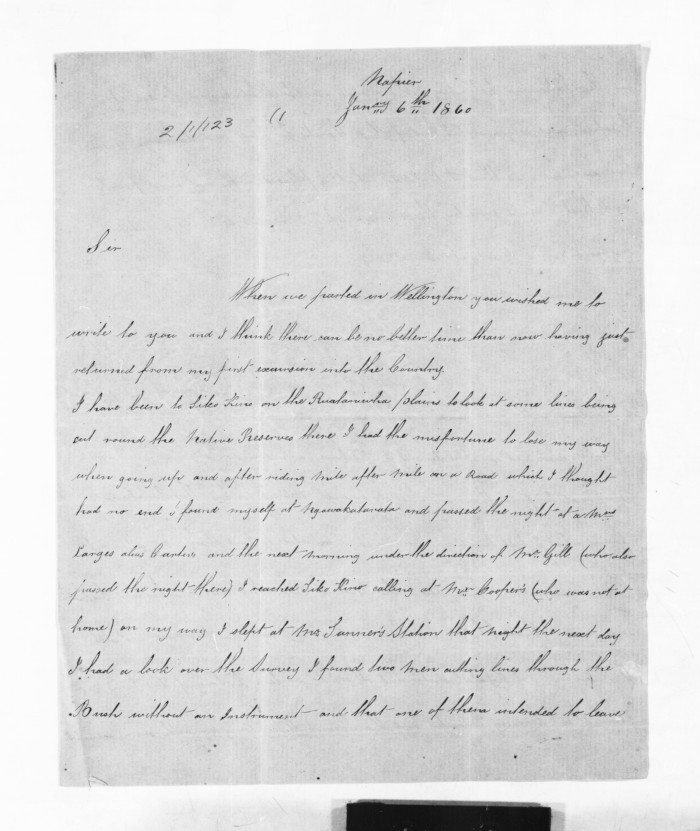 Napier
Janry 6th 1860
2/1/123 (1
Sir
When we parted in Wellington you wished me to
write to you and I think there can be no better time than now having just
returned from my first excursion into the Country.
I have been to Tiko Kino on the Ruataniwha plains to look at some lines being
cut round the Native Preserves there I had the misfortune to lose my way
when going up and after riding mile after mile on a Road which I thought
had no end I found myself at Ngawakatatara and passed the night at a Mrs
Larges alias Carters and the next morning under the direction of Mr. Gill (who also
passed the night there) I reached Tiko Kino calling at Mr Cooper's (who was not at
home) on my way I slept at Mr Tanner's Station that night the next day
I had a look over the Survey I found two men cutting lines through the
Bush without an Instrument and that one of them intended to leave